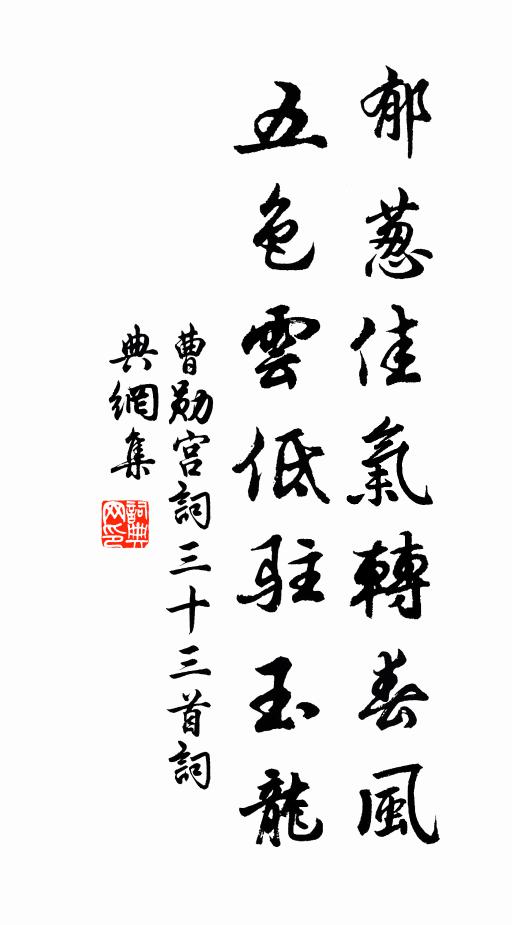 郁葱佳氣轉春風
五色雲低駐玉龍
曹勛宮詞三十三首詞
典網集
詞典
网印